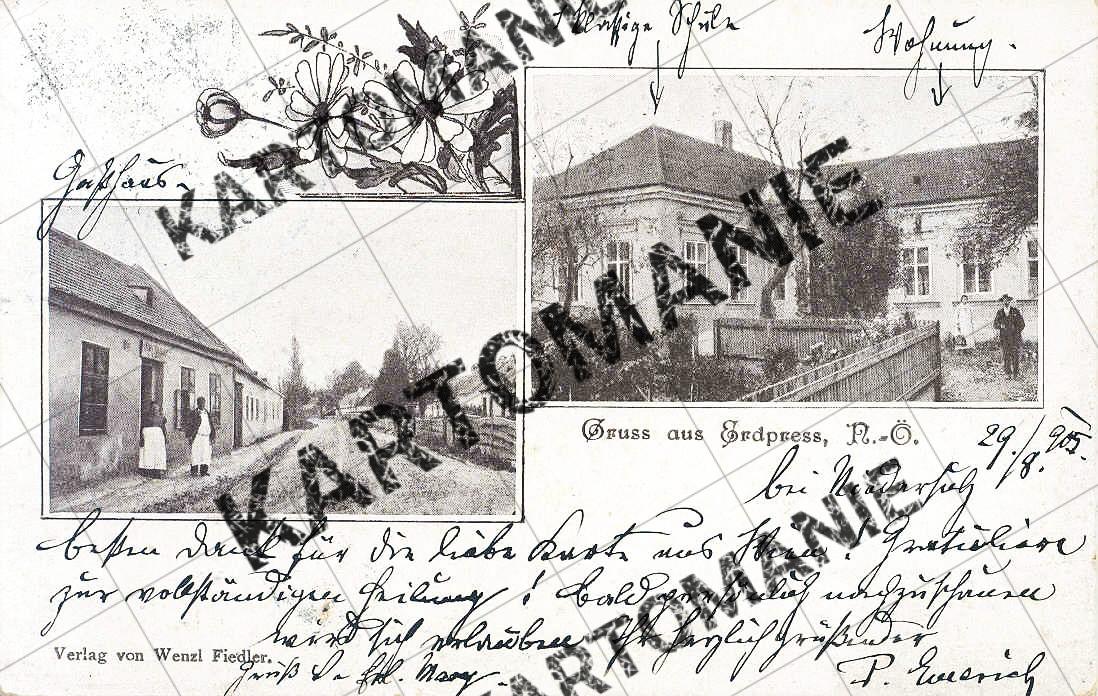 1 klassige Schule
Wohnung.
Gasthaus.
Gruss aus Erdpress, N.-Ö.
29./8. 905.
bei Niedersulz
besten Dank für die liebe Karte aus Wien! Gratuliere
zur vollständigen Heilung! Bald persönlich nachzuschauen
wird sich erlauben Ihr herzlich grüßender
P. Emerich
Verlag von Wenzl Fiedler.
Gruß
KARTOMANIE
KARTOMANIE
KARTOMANIE
KARTOMANIE